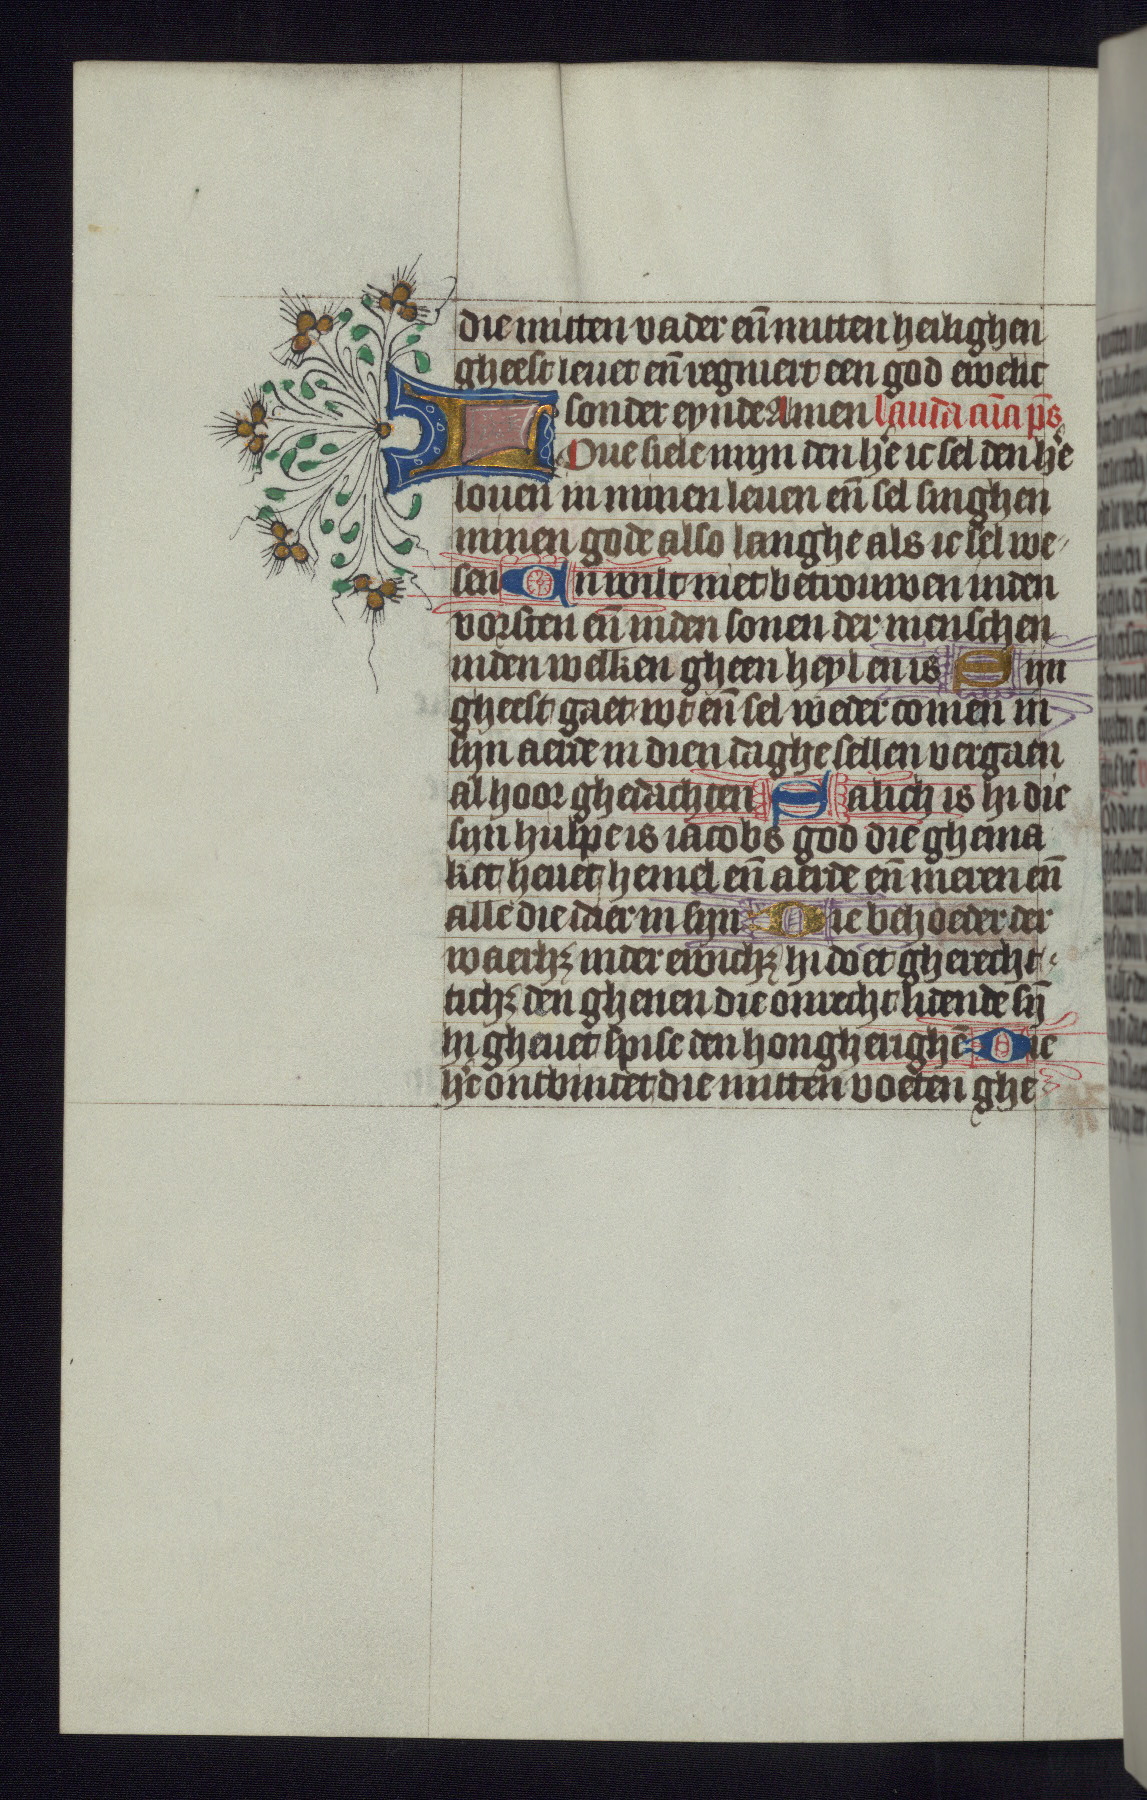 die mitten vader en̄ mitten heilighen
gheest leuet en̄ regniert een god ewelic
sonder eynde Amen Lauda aīa ps̄
LOue siele mijn den hēe ic sel den hēe
louen in minen leuen en̄ sel singhen
minen gode also langhe als ic sel we-
sen En wilt niet betrouwen inden
vorsten en̄ inden sonen der menschen
inden welken gheen heyl en is Sijn
gheest gaet wt en̄ sel weder comen in
sijn aerde in dien daghe sellen vergaen
al hoor ghedachten Salich is hi die
sijn hulpe is iacobs god die ghema
ket heuet hemel en̄ aerde en̄ meren en̄
alle die daer in sijn Die behoeder der
waerhꝫ inder ewichꝫ hi doet gherecht-
tichꝫ den ghenen die onrecht lidende sijn̄
hi gheuet spise den hongherighē Die
hēe ontbindet die mitten voeten ghe